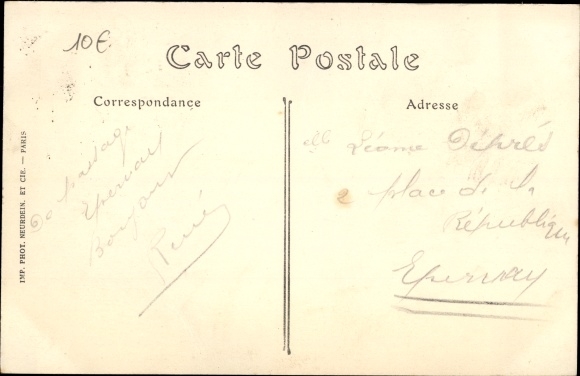 10€
Carte Postale
Correspondance
Adresse
IMP. PHOT. NEURDEIN. ET CIE. — PARIS
De passage
Epernay
Bonjour
René
Déprés
2 place de la
République
Epernay